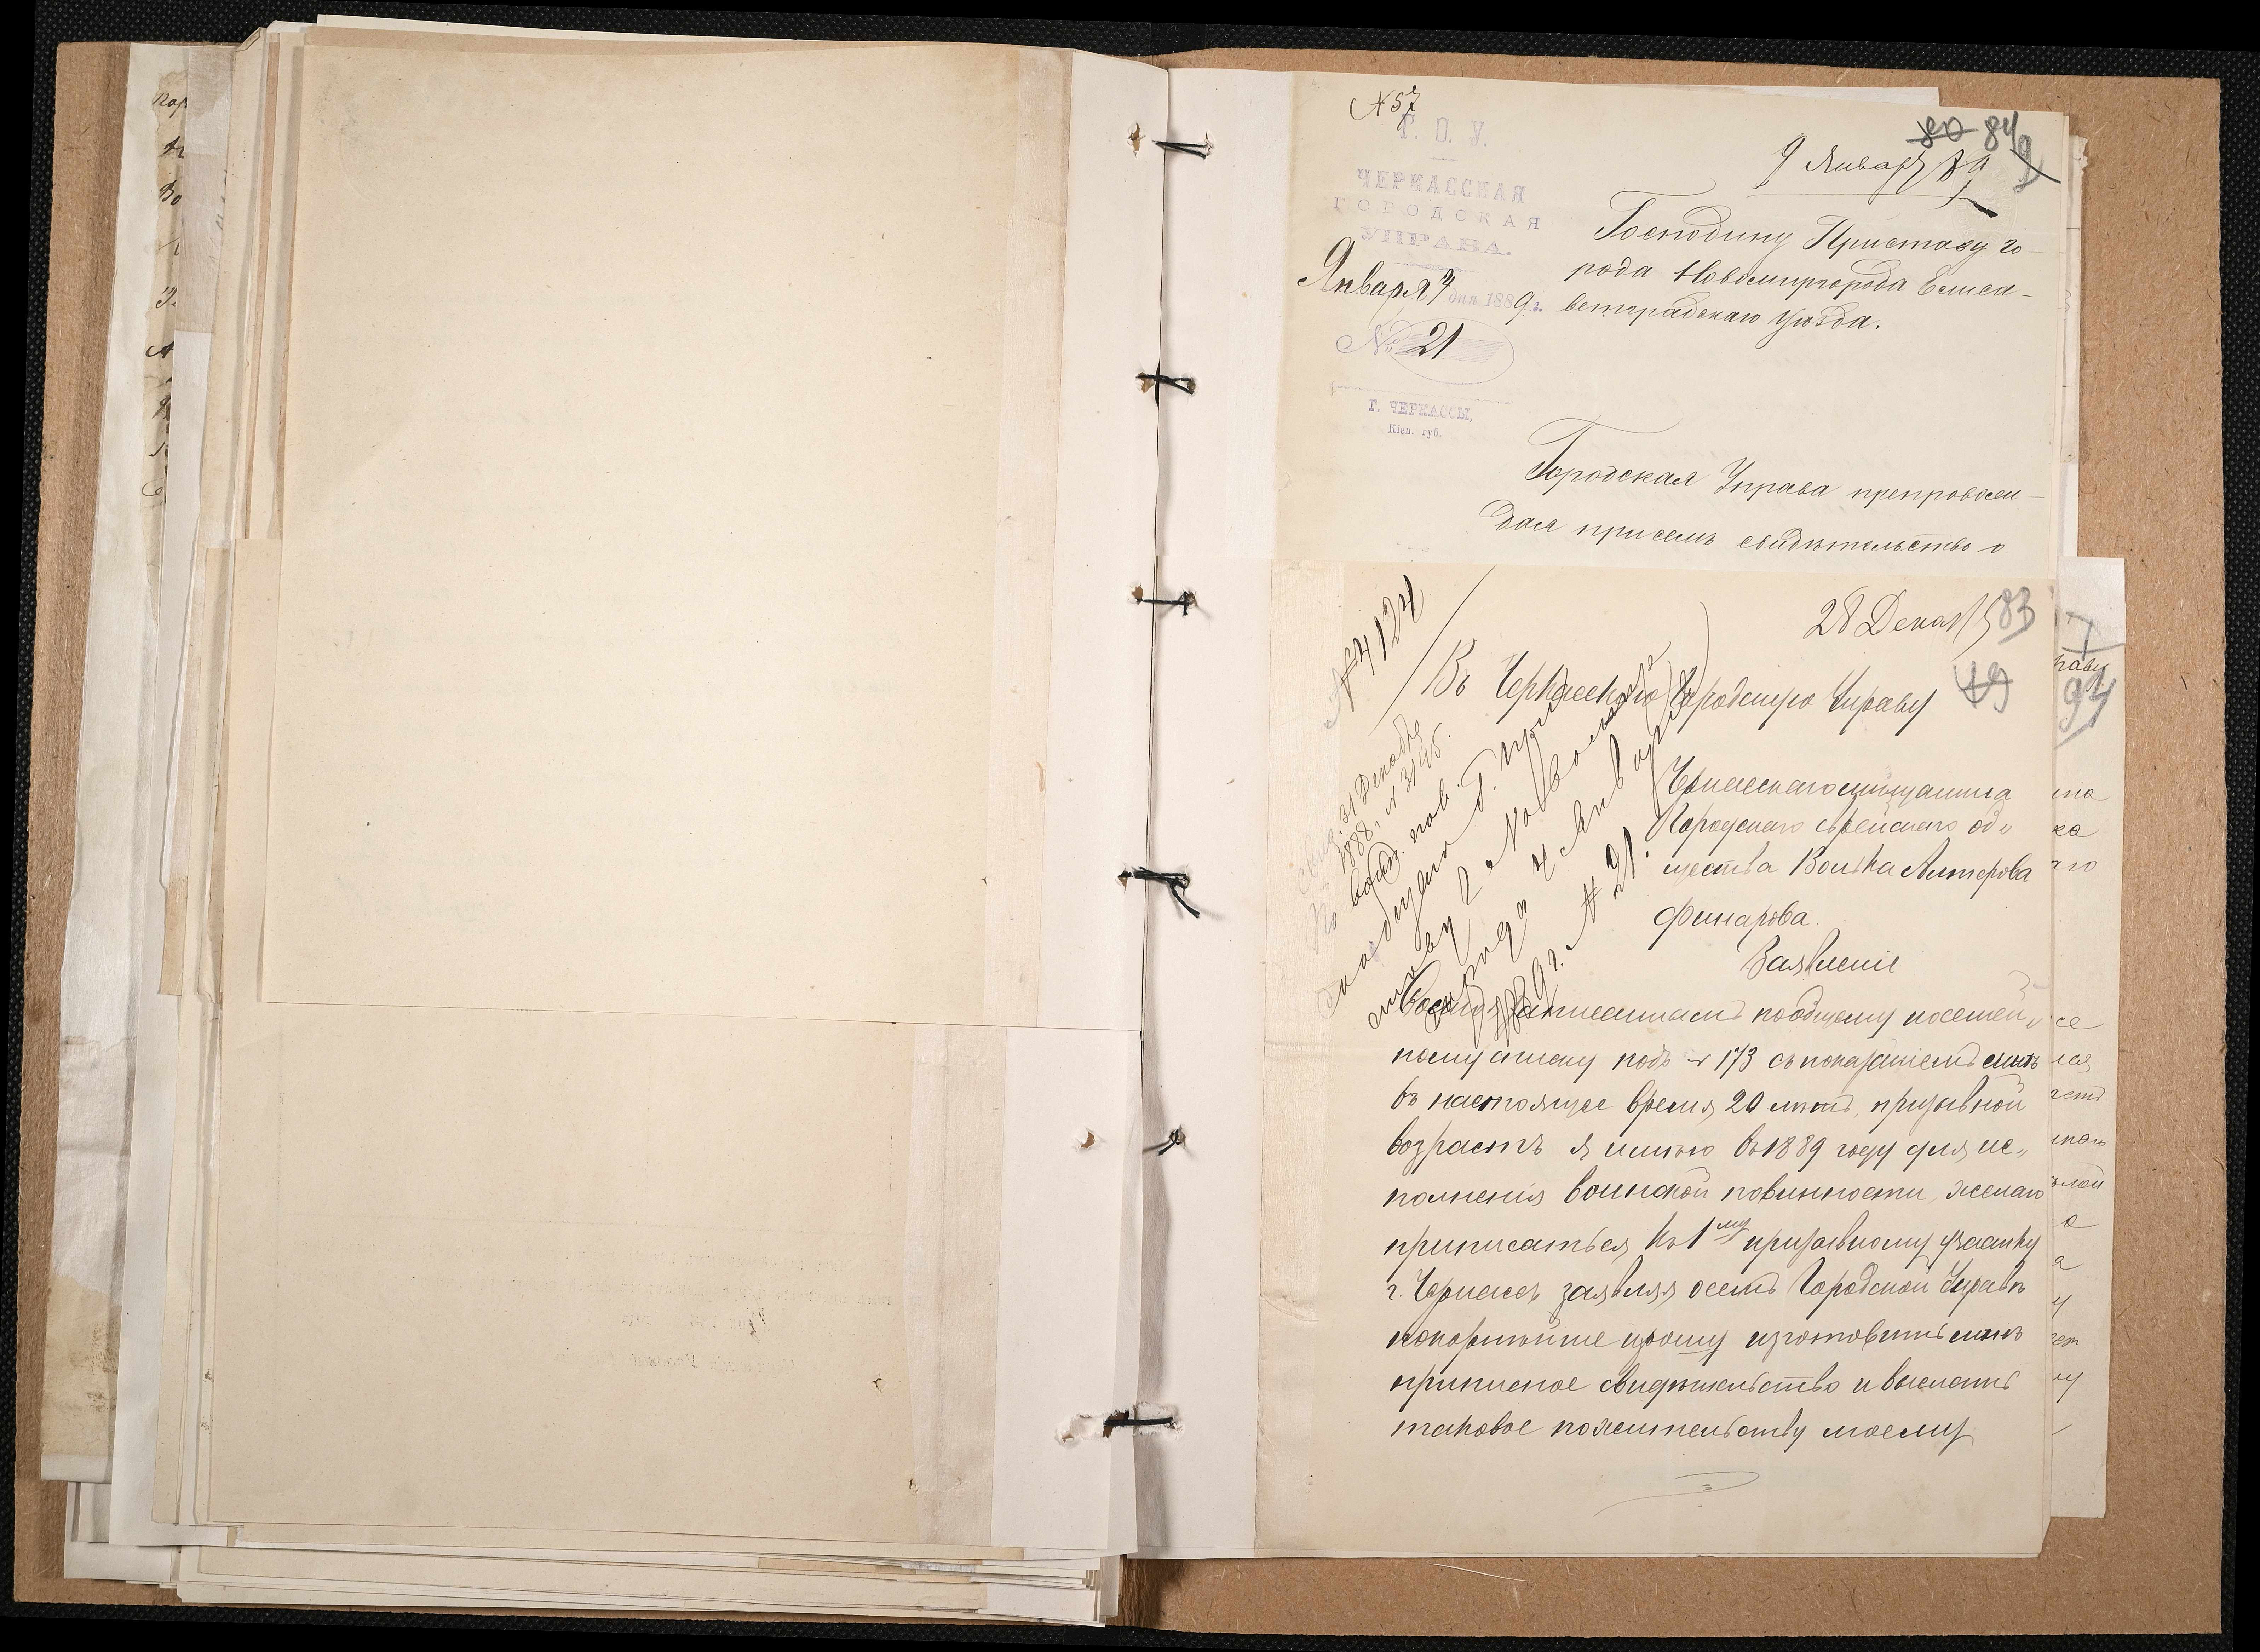 № 57
80 84
9 Январ 89
Г. О. У.
ЧЕРКАССКАЯ
ГОРОДСКАЯ
УПРАВА.
Января 4 дня 1889 г.
№ 21
Г. ЧЕРКАССЫ,
Кіев. губ.
Господину Приставу го-
рода Новомиргорода Елиса-
ветградскаго уѣзда.
Городская Управа препровож-
дая при семъ свидѣтельство о
28 Декаб 83
№ 4124
Въ Черкасскую Городскую Управу
49
94
Черкасскаго мѣщанина
Городскаго еврейскаго об-
щества Волька Алтерова
Финарова
Заявленіе
Свид. 31 Декабря
1888 г. № 3145.
воин. пов.
Г. При
ставу г. Новоми
4 Января
89 г. № 21.
Состоя записаннымъ по общему посемей-
ному списку подъ № 173 съ показаніемъ мнѣ
въ настоящее время 20 лѣтъ, призывной
возрастъ я имѣю въ 1889 году для ис-
полненія воинской повинности, желаю
приписаться къ 1му призывному участку
г. Черкассъ заявляя о семъ Городской Управѣ
покорнѣйше прошу изготовить мнѣ
приписное свидѣтельство и выслать
таковое по жительству моему